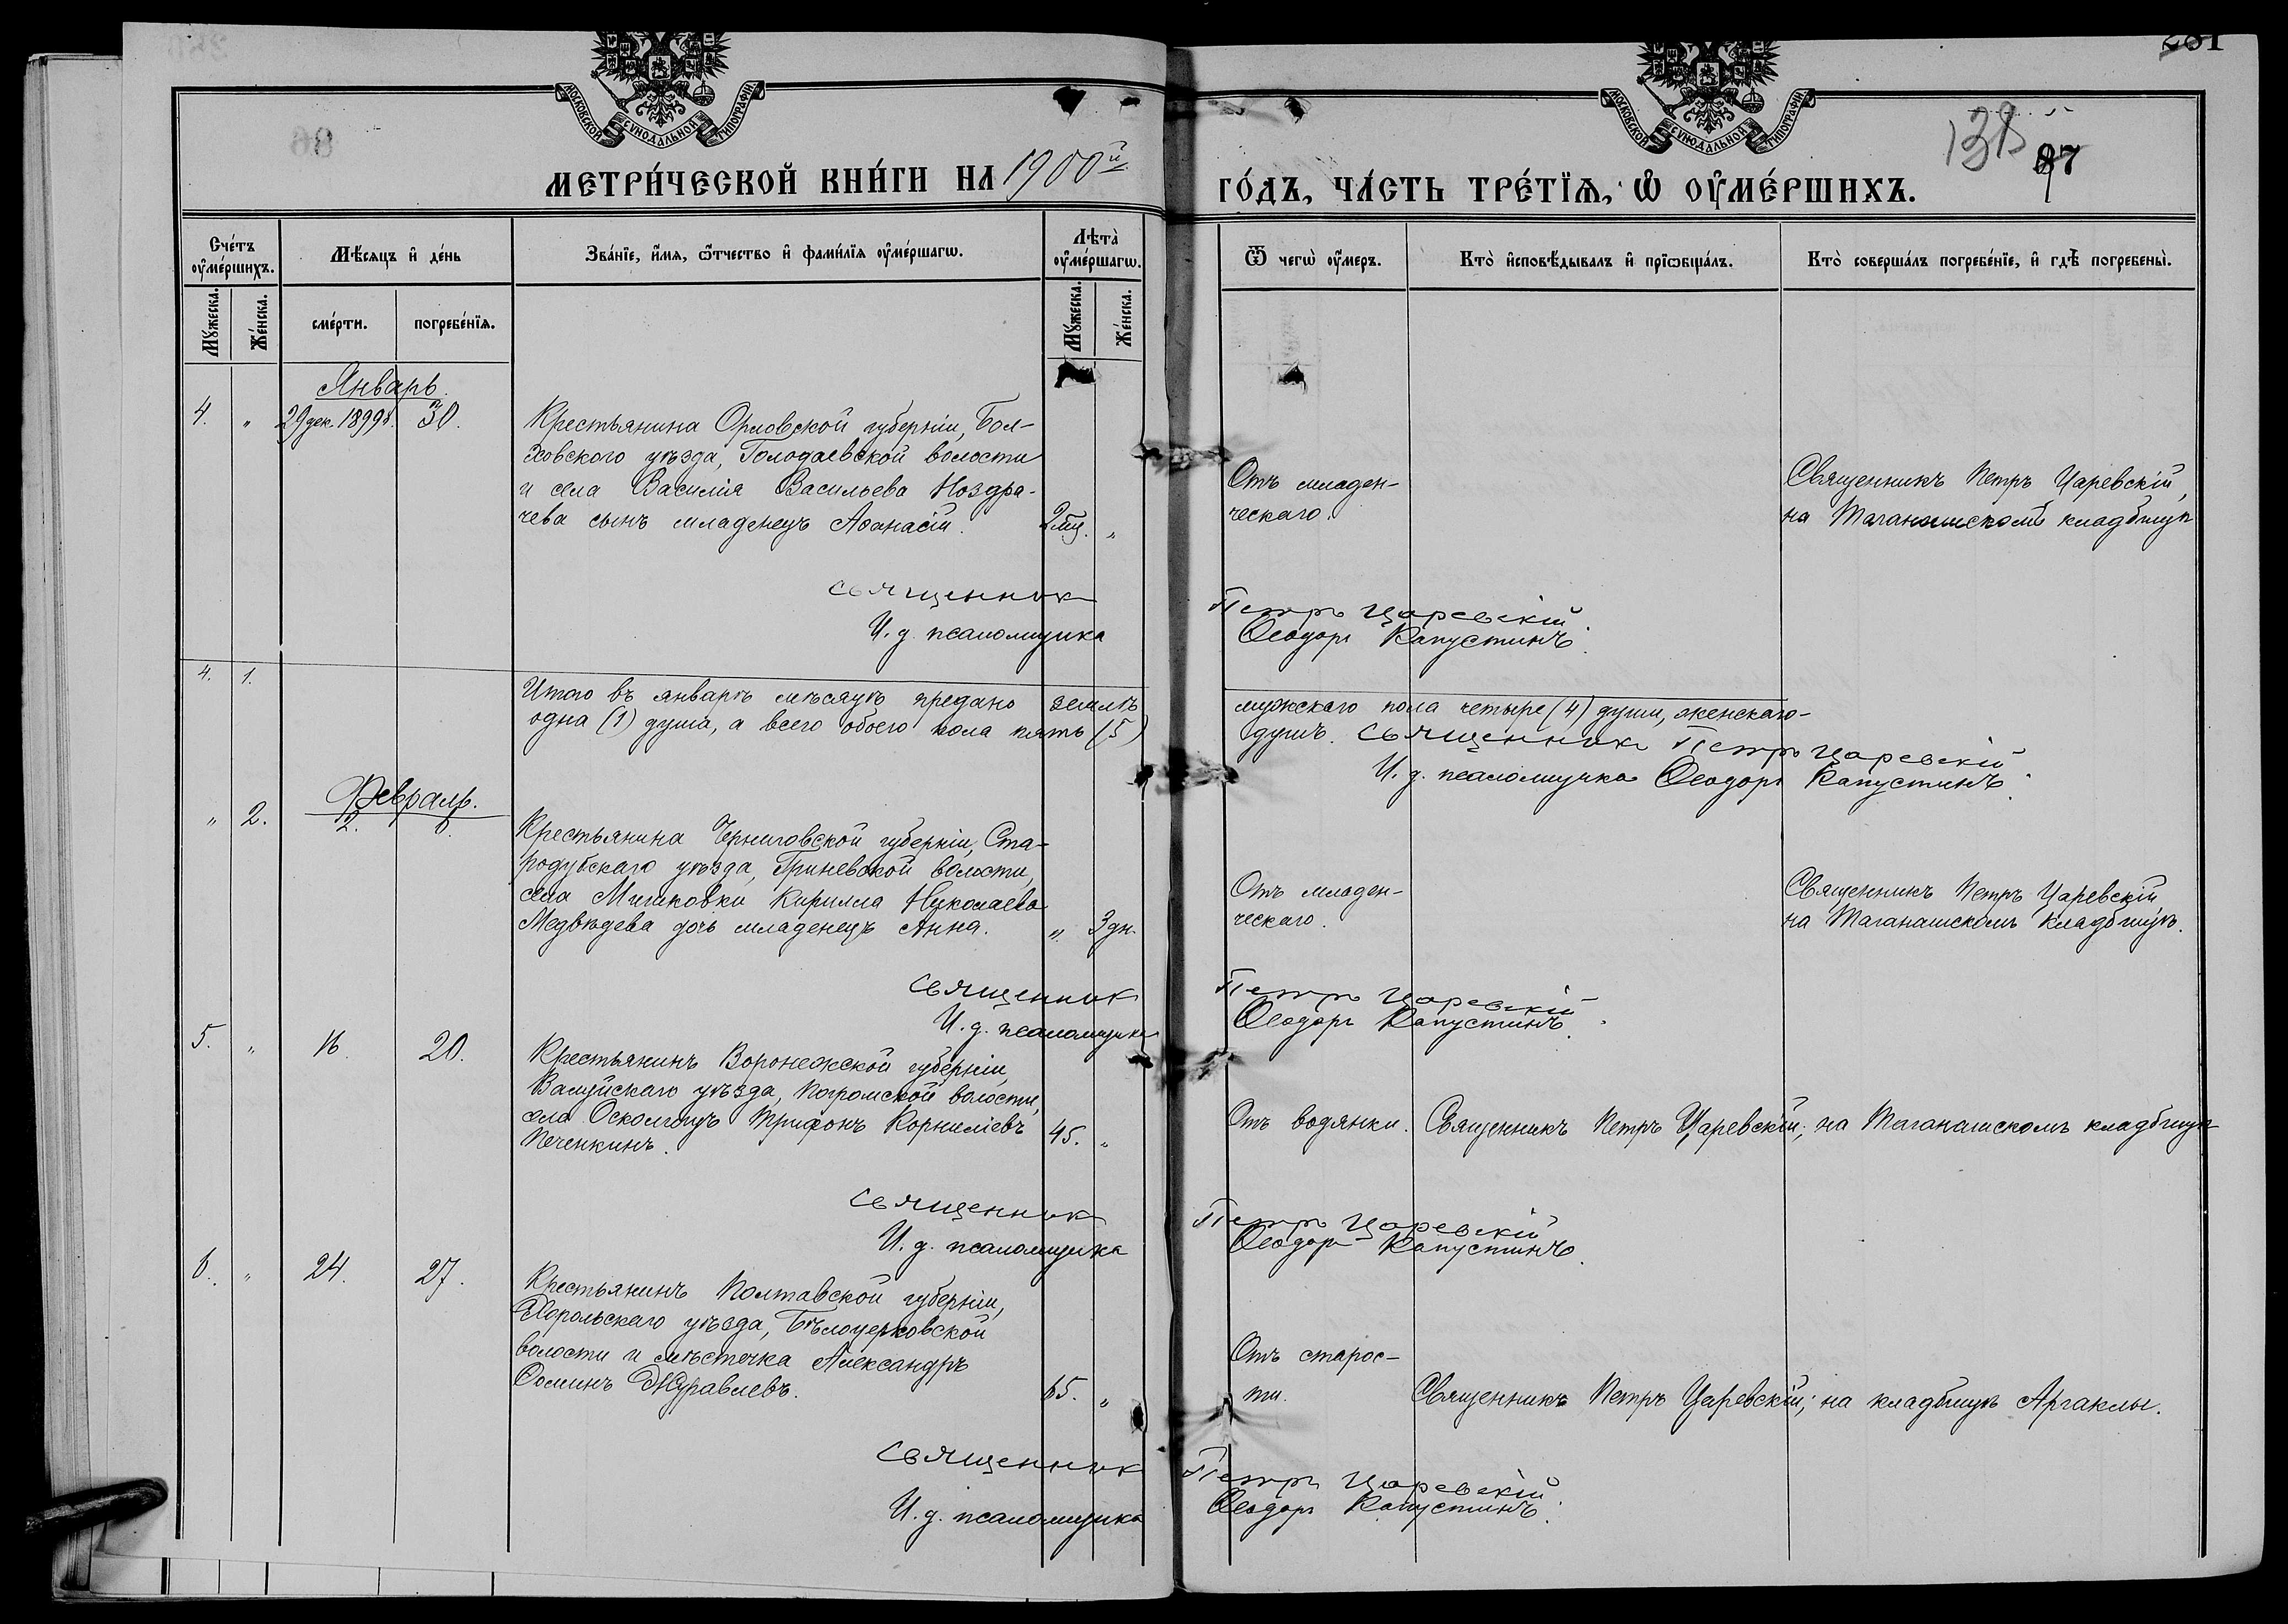 281
МОСКОВСКОЙ СѴНОДАЛЬНОЙ ТИПОГРАФІИ
МОСКОВСКОЙ СѴНОДАЛЬНОЙ ТИПОГРАФІИ
138
87
МЕТРИ́ЧЕСКОЙ КНИ́ГИ НА 1900й
ГО́ДЪ, ЧА́СТЬ ТРЕ́ТЇѦ, Ѡ҆ ОУ҆МЕ́РШИХЪ.
Сче́тъ оу҆ме́ршихъ.
Мѣ́сѧцъ и҆ де́нь
Зва́нїе, и҆́мѧ, ѻ҆́тчество и҆ фами́лїѧ оу҆ме́ршагѡ.
Лѣта̀ оу҆ме́ршагѡ.
Ѿ чегѡ̀ оу҆́меръ.
Кто̀ и҆сповѣ́дывалъ и҆ прїѡбща́лъ.
Кто̀ соверша́лъ погребе́нїе, и҆ гдѣ̀ погребены̀.
Мꙋ́жеска.
Же́нска.
сме́рти.
погребе́нїѧ.
Мꙋ́жеска.
Же́нска.
Январь.
4. " 29 дек. 1899 г. 30. Крестьянина Орловской губерніи, Бол-
ховского уѣзда, Голодаевской волости
и села Василія Васильева Ноздра-
чева сынъ младенецъ Аѳанасій. 2 мц. "
Отъ младен-
ческаго.
Священникъ Петръ Царевскій,
на Таганашскомъ кладбищѣ
Священникъ Петръ Царевскій
И. д. псаломщика Ѳеодоръ Капустинъ.
4. 1.
Итого въ январѣ мѣсяцѣ предано землѣ мужскаго пола четыре (4) души, женскаго-
одна (1) душа, а всего обоего пола пять (5) душъ. Священникъ Петръ Царевскій
И. д. псаломщика Ѳеодоръ Капустинъ.
Февраль.
" 2. 2. 6. Крестьянина Черниговской губерніи, Ста-
родубскаго уѣзда, Гриневской волости,
села Мишковки Кирилла Николаева
Медвѣдева дочь младенецъ Анна. " 3 дн.
Отъ младен-
ческаго.
Священникъ Петръ Царевскій
на Таганашскомъ кладбищѣ.
Священникъ Петръ Царевскій
И. д. псаломщика Ѳеодоръ Капустинъ.
5. " 16. 20. Крестьянинъ Воронежской губерніи,
Валуйскаго уѣзда, Погромской волости,
села Осколищъ Трифонъ Корниліевъ
Печенкинъ. 45. "
Отъ водянки. Священникъ Петръ Царевскій; на Таганашскомъ кладбищѣ
Священникъ Петръ Царевскій
И. д. псаломщика Ѳеодоръ Капустинъ.
6. " 24. 27. Крестьянинъ Полтавской губерніи,
Хорольскаго уѣзда, Бѣлоцерковской
волости и мѣстечка Александръ
Ѳоминъ Журавлевъ. 65. "
Отъ старос-
ти. Священникъ Петръ Царевскій; на кладбищѣ Аргаклы.
Священникъ Петръ Царевскій
И. д. псаломщика Ѳеодоръ Капустинъ.